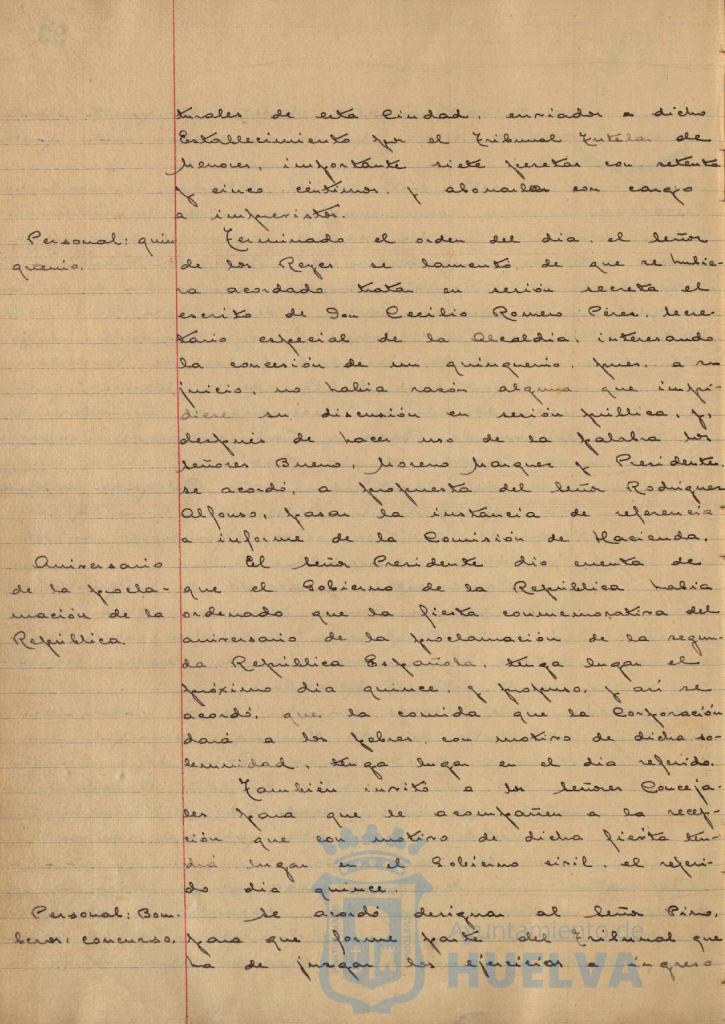 turales de esta Ciudad, enviados a dicho
Establecimiento por el Tribunal Tutelar de
Menores, importante siete pesetas con setenta
y cinco céntimos, y abonarlas con cargo
a imprevistos.
Personal: quin
quenio.
Terminado el orden del dia, el Señor
de los Reyes se lamentó de que se hubie-
ra acordado tratar en sesión secreta el
escrito de Don Cecilio Romero Pérez, Secre-
tario especial de la Alcaldia, interesando
la concesión de un quinquenio, pues, a su
juicio, no habia razón alguna que impi-
diese su discusión en sesión pública, y,
después de hacer uso de la palabra los
Señores Bueno, Moreno Marquez y Presidente,
se acordó, a propuesta del Señor Rodríguez
Alfonso, pasar la instancia de referencia
a informe de la Comisión de Hacienda.
Aniversario
de la procla-
mación de la
República.
El Señor Presidente dio cuenta de
que el Gobierno de la República habia
ordenado que la fiesta conmemorativa del
aniversario de la proclamación de la segun-
da República Española, tenga lugar el
próximo dia quince, y propuso, y así se
acordó, que la comida que la Corporación
dará a los pobres, con motivo de dicha so-
lemnidad, tenga lugar en el dia referido.
También invitó a los Señores Conceja-
les para que le acompañen a la recep-
ción que con motivo de dicha fiesta ten-
drá lugar en el Gobierno civil, el referi-
do dia quince.
Personal: Bom-
beros: concurso.
Se acordó designar al Señor Pino,
para que forme parte del Tribunal que
ha de juzgar los ejercicios a ingreso
Ayuntamiento de
HUELVA